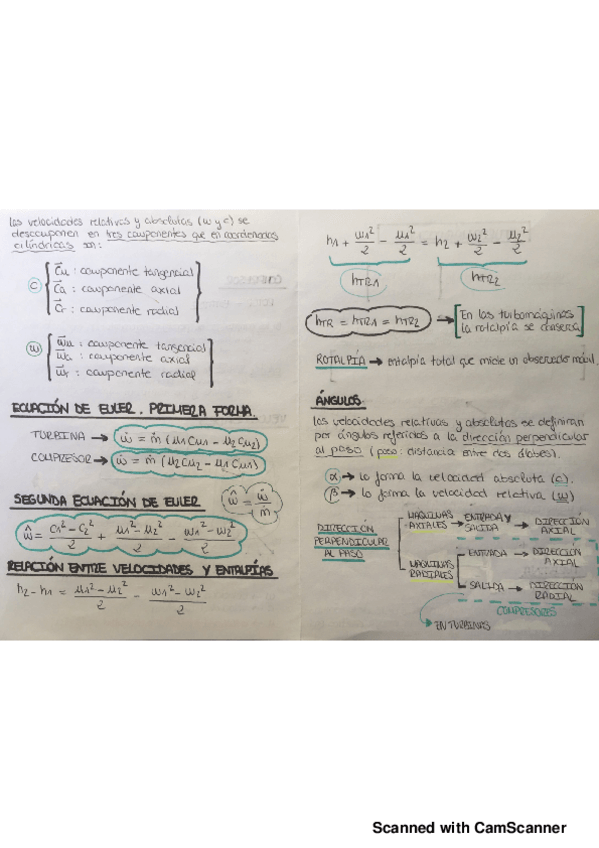 Las velocidades relativas y absolutas (w y c) se
descomponen en tres componentes que en coordenadas
cilíndricas son:
c { c⃗u : componente tangencial
c⃗a : componente axial
c⃗r : componente radial }
w { w⃗u : componente tangencial
w⃗a : componente axial
w⃗r : componente radial }
ECUACIÓN DE EULER. PRIMERA FORMA.
TURBINA → ẇ = ṁ (μ1 Cu1 - μ2 Cu2)
COMPRESOR → ẇ = ṁ (μ2 Cu2 - μ1 Cu1)
SEGUNDA ECUACIÓN DE EULER
ŵ = ẇ/ṁ
ŵ = (c1² - c2²)/2 + (μ1² - μ2²)/2 - (w1² - w2²)/2
RELACIÓN ENTRE VELOCIDADES Y ENTALPÍAS
h2 - h1 = (μ1² - μ2²)/2 - (w1² - w2²)/2
h1 + w1²/2 - μ1²/2 = h2 + w2²/2 - μ2²/2
hTR1 hTR2
hTR = hTR1 = hTR2 → [En las turbomáquinas
la rotalpía se conserva]
ROTALPÍA → entalpía total que mide un observador móvil.
ÁNGULOS
Las velocidades relativas y absolutas se definirán
por ángulos referidos a la dirección perpendicular
al paso (paso: distancia entre dos álabes).
α → lo forma la velocidad absoluta (c).
β → lo forma la velocidad relativa (w)
DIRECCIÓN
PERPENDICULAR
AL PASO
MÁQUINAS
AXIALES → ENTRADA Y
SALIDA → DIRECCIÓN
AXIAL
MÁQUINAS
RADIALES
ENTRADA → DIRECCIÓN
AXIAL
SALIDA → DIRECCIÓN
RADIAL
COMPRESORES
EN TURBINAS
Scanned with CamScanner